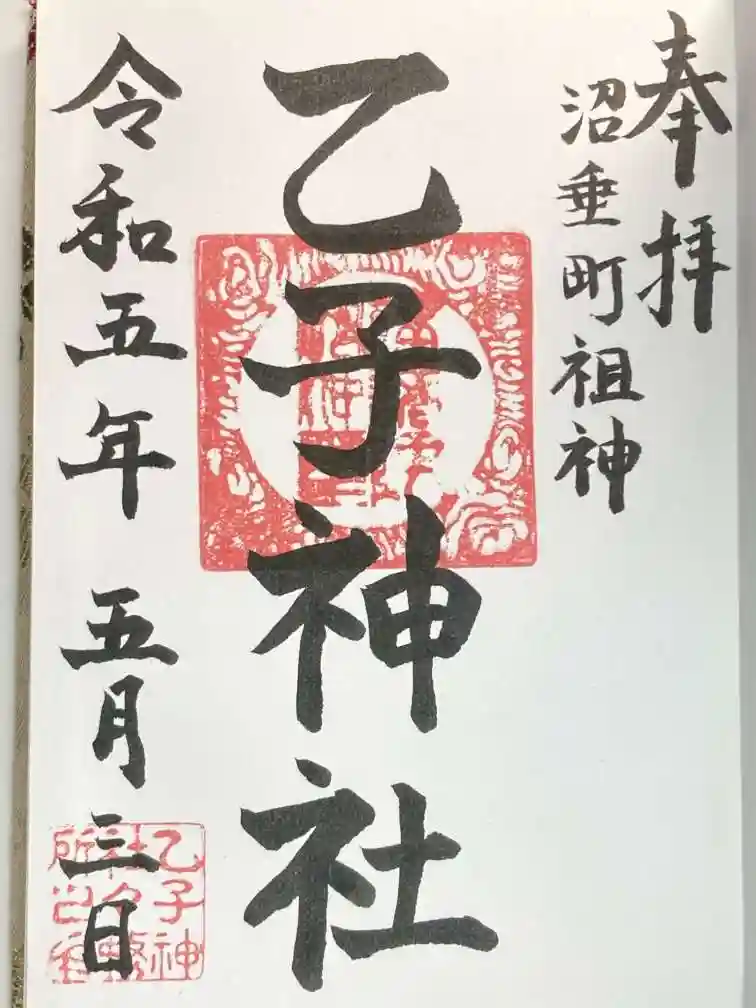 奉拝
沼垂町祖神
乙子神社
令和五年 五月三日
乙子神
社
所